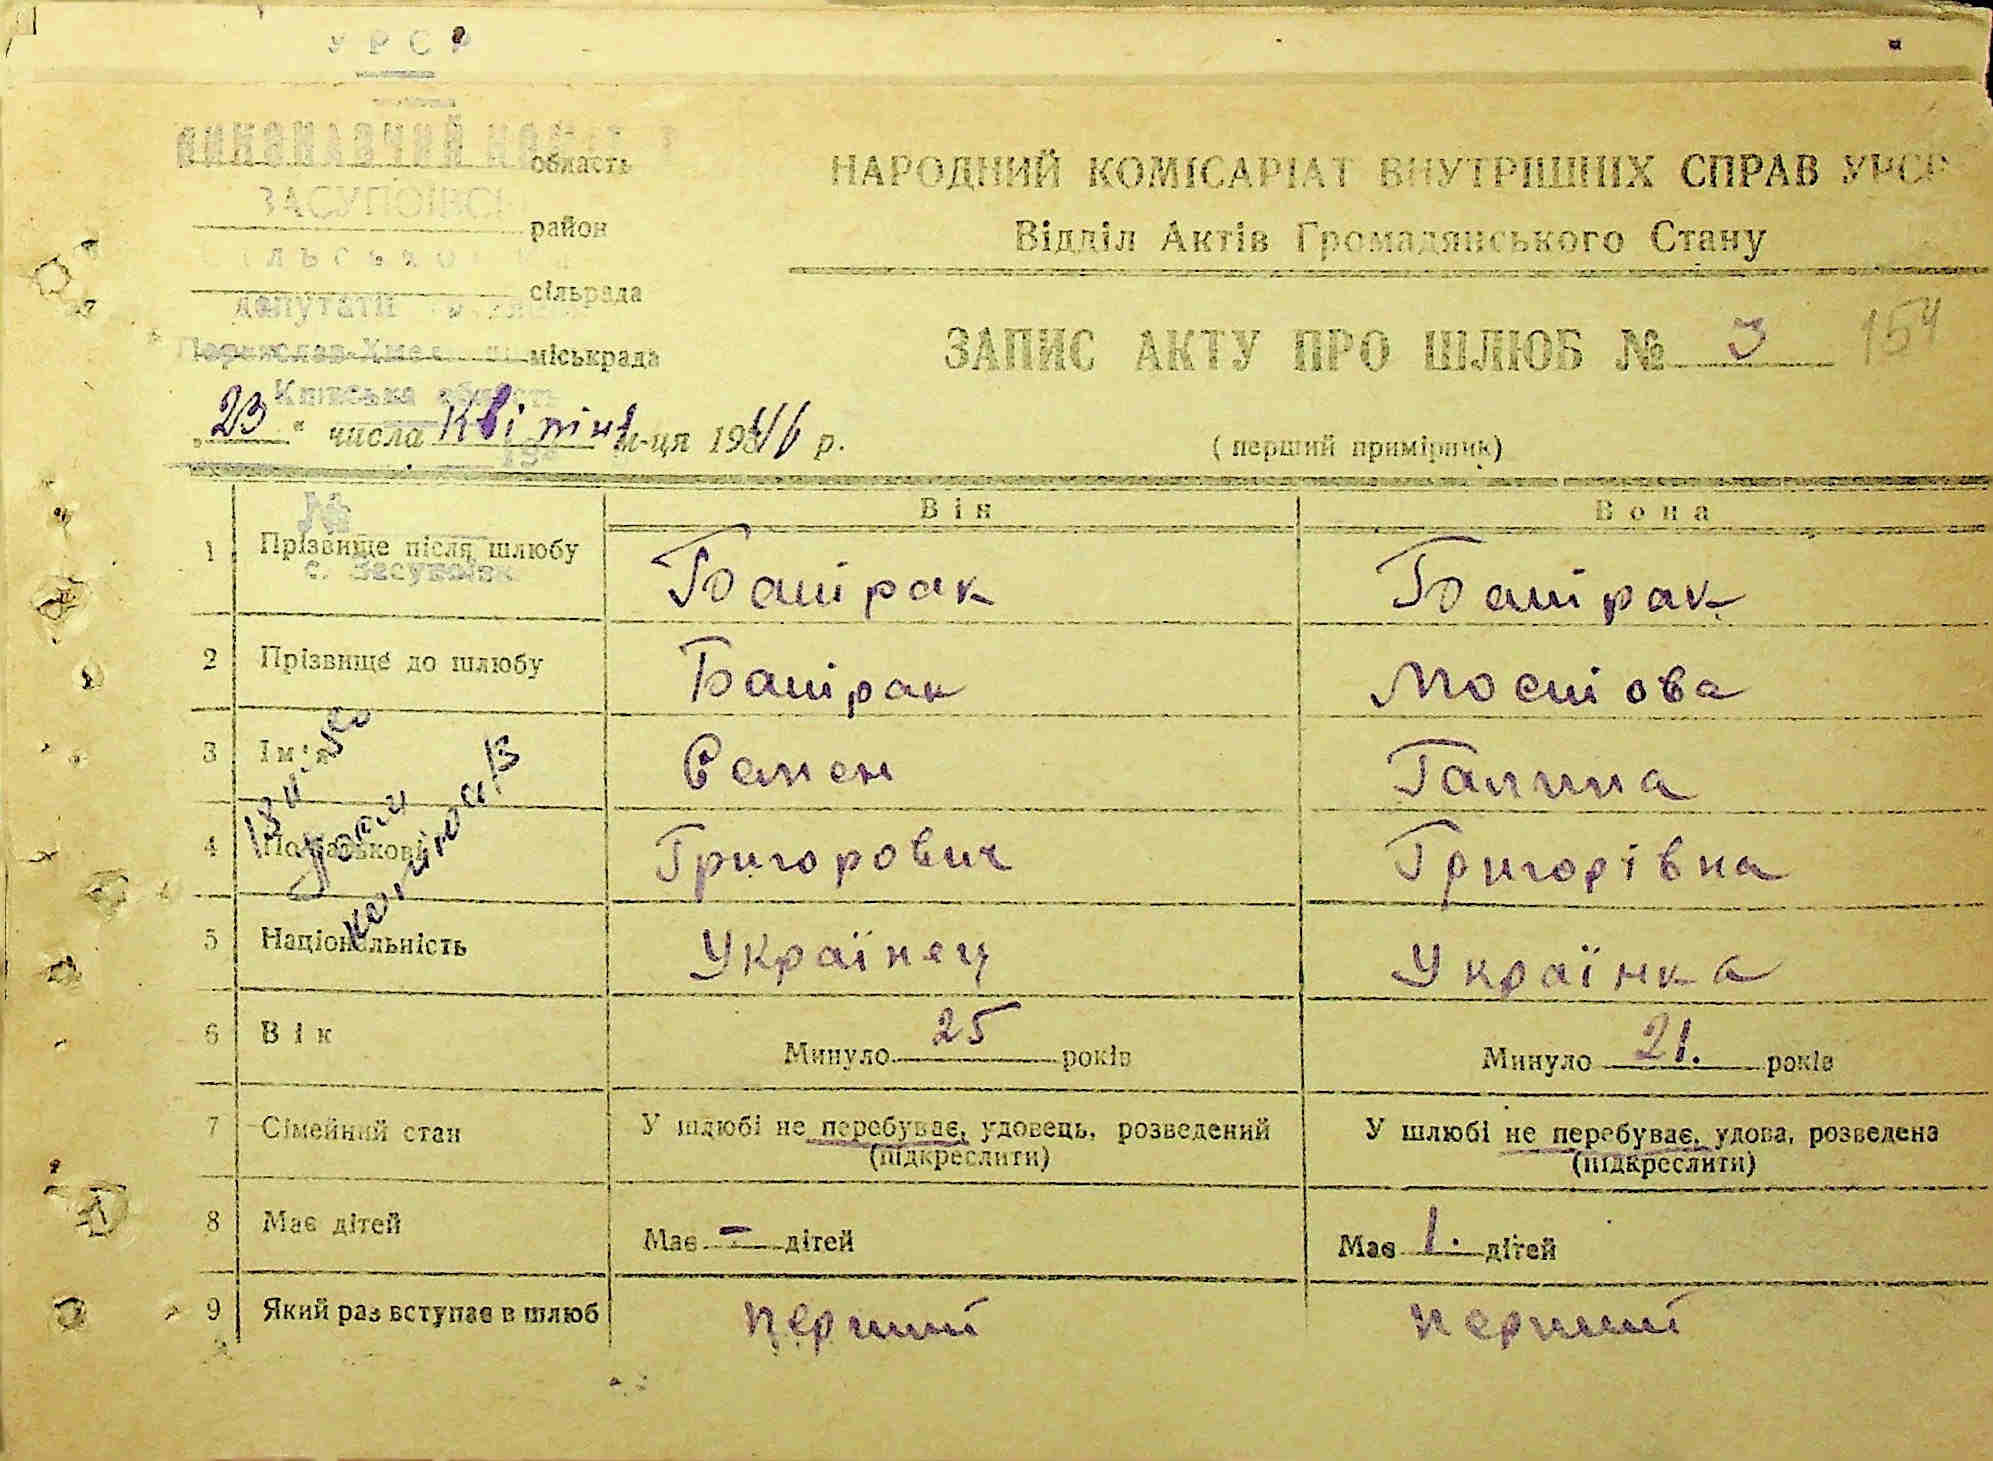 УРСР
ВИКОНАВЧИЙ область
ЗАСУПОЇВСЬ район
сільрада
депутатів
міськрада
Київська область
НАРОДНИЙ КОМІСАРІАТ ВНУТРІШНІХ СПРАВ УРСР
Відділ Актів Громадянського Стану
ЗАПИС АКТУ ПРО ШЛЮБ № 3 154
„23" числа Квітня м-ця 1946 р.
(перший примірник)
Він Вона
№
1 Прізвище після шлюбу Башрак Башрак
с. Засупоївка
2 Прізвище до шлюбу Башрак
3 Ім'я Семен Галина
4 По батькові Григорович Григорівна
5 Національність Українец Українка
6 Вік Минуло 25 років Минуло 21. років
7 Сімейний стан У шлюбі не перебуває, удовець, розведений У шлюбі не перебуває, удова, розведена
(підкреслити) (підкреслити)
8 Має дітей Має - дітей Має 1. дітей
9 Який раз вступає в шлюб перший перший